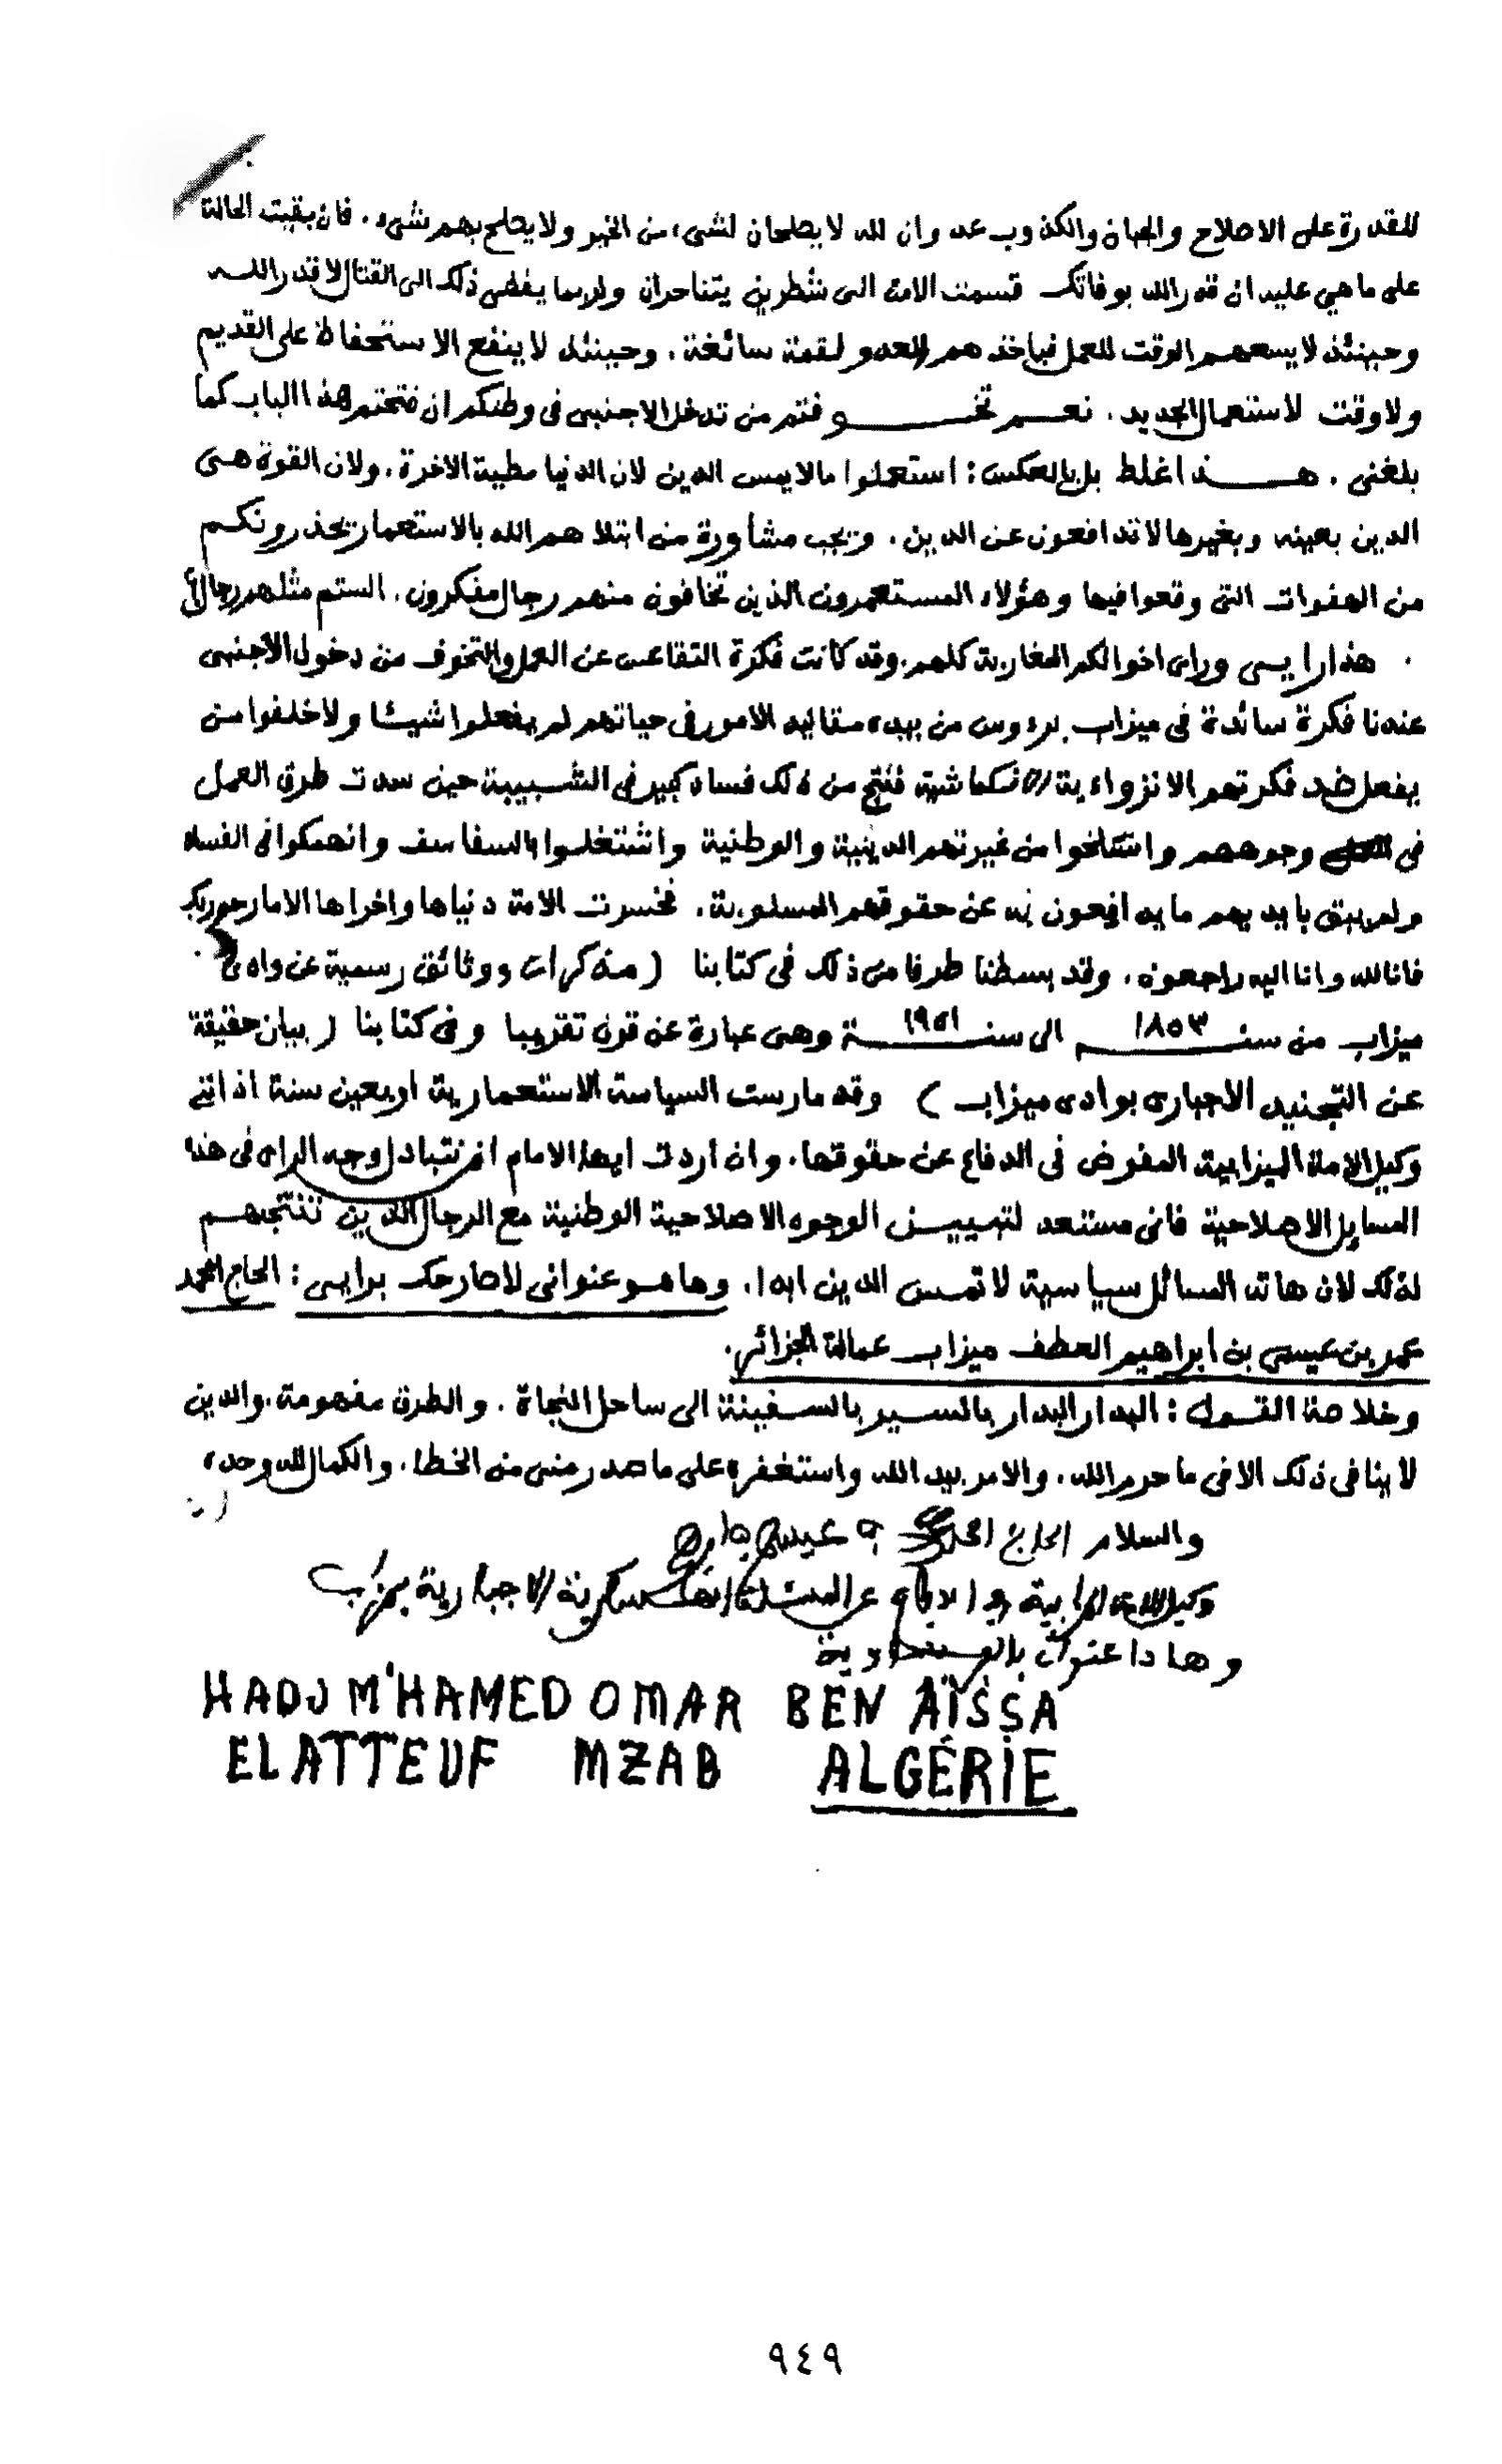 للقدرة على الاصلاح والجبان والكذوب عدوان لله لا يصلحان لشيء من الخير ولا يصلح بهم شيء. فان بقيت الحالة
على ما هي عليه ان قدر الله بوفاتك قسمت الامة الى شطرين يتناحران ولربما يفضي ذلك الى القتال لا قدر الله
وحينئذ لا يسعهم الوقت للعمل فياخذهم العدو لقمة سائغة. وحينئذ لا ينفع الاستحفاظ على القديم
ولا وقت لاستعمال الجديد. نعم تخوفتم من تدخل الاجنبي في وطنكم ان فتحتم هذا الباب كما
بلغني. هذا غلط بل بالعكس: استعملوا ما لا يمس الدين لان الدنيا مطية الاخرة. ولان القوة هي
الدين بعينه وبغيرها لا تدافعون عن الدين. وتجب مشاورة من ابتلاهم الله بالاستعمار يحذرونكم
من الهفوات التي وقعوا فيها وهؤلاء المستعمرون الذين تخافون منهم رجال مفكرون. الستم مثلهم رجال؟
. هذا رايي وراي اخوالكم المغاربة كلهم. وقد كانت فكرة التقاعس عن العمل والتخوف من دخول الاجنبي
عندنا فكرة سائدة في ميزاب برؤوس من بيده مقاليد الامور في حياتهم لم يفعلوا شيئا ولا خلفوا من
يفعل ضد فكرتهم الانزواءية الانكماشية فنتج من ذلك فساد كبير في الشبيبة حين سدت طرق العمل
في وجوههم وانتلخوا من غيرتهم الدينية والوطنية واشتغلوا بالسفاسف وانهمكوا في الفساد
ولم يبق بايديهم ما يدافعون به عن حقوقهم المسلوبة. فخسرت الامة دنياها واخراها الا ما رحم ربك
فانا لله وانا اليه راجعون. وقد بسطنا طرفا من ذلك في كتابنا (مذكرات ووثائق رسمية عن وادي
ميزاب من سنة ١٨٥٣ الى سنة ١٩٥١ وهي عبارة عن قرن تقريبا وفي كتابنا (بيان حقيقة
عن التجنيد الاجباري بوادي ميزاب) وقد مارست السياسة الاستعمارية اربعين سنة اذ انني
وكيل الامة الميزابية المفوض في الدفاع عن حقوقها. وان اردت ايها الامام ان نتبادل وجه الراي في هذه
المسايل الاصلاحية فاني مستعد لتبيين الوجوه الاصلاحية الوطنية مع الرجال الذين تنتجهم
لذلك لان هاته المسائل سياسية لا تمس الدين ابدا. وها هو عنواني لاصارحك برايي: الحاج امحمد
عمر بن عيسى بن ابراهيم العطف ميزاب عمالة الجزائر.
وخلاصة القول: البدار البدار بالسير بالسفينة الى ساحل النجاة. والطرق مفهومة. والدين
لا ينافي ذلك الا في ما حرم الله. والامر بيد الله واستغفره على ما صدر مني من الخطا. والكمال لله وحده
والسلام الحاج امحمد عيسى
وكيل الامة الميزابية في الدفاع عن المسئلة العسكرية الاجبارية بميزاب
وهاذا عنواني
HADJ M'HAMED OMAR BEN AÏSSA
EL ATTEUF MZAB ALGÉRIE
٩٤٩